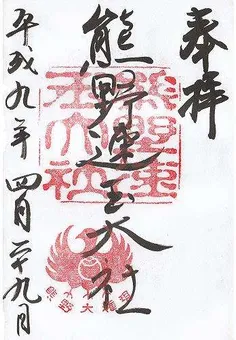 奉拝
熊野速玉大社
平成九年 四月二十九日
熊野速玉大社